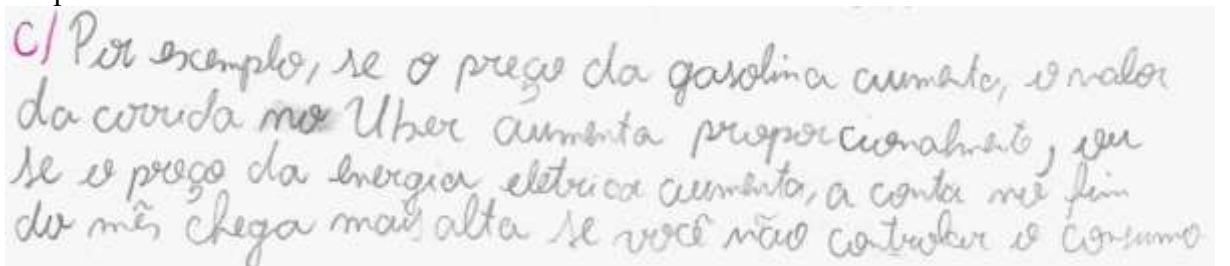 c/ Por exemplo, se o preço da gasolina aumenta, o valor
da corrida no Uber aumenta proporcionalmente, ou
se o preço da energia eletrica aumenta, a conta no fim
do mês chega mais alta se você não controlar o consumo